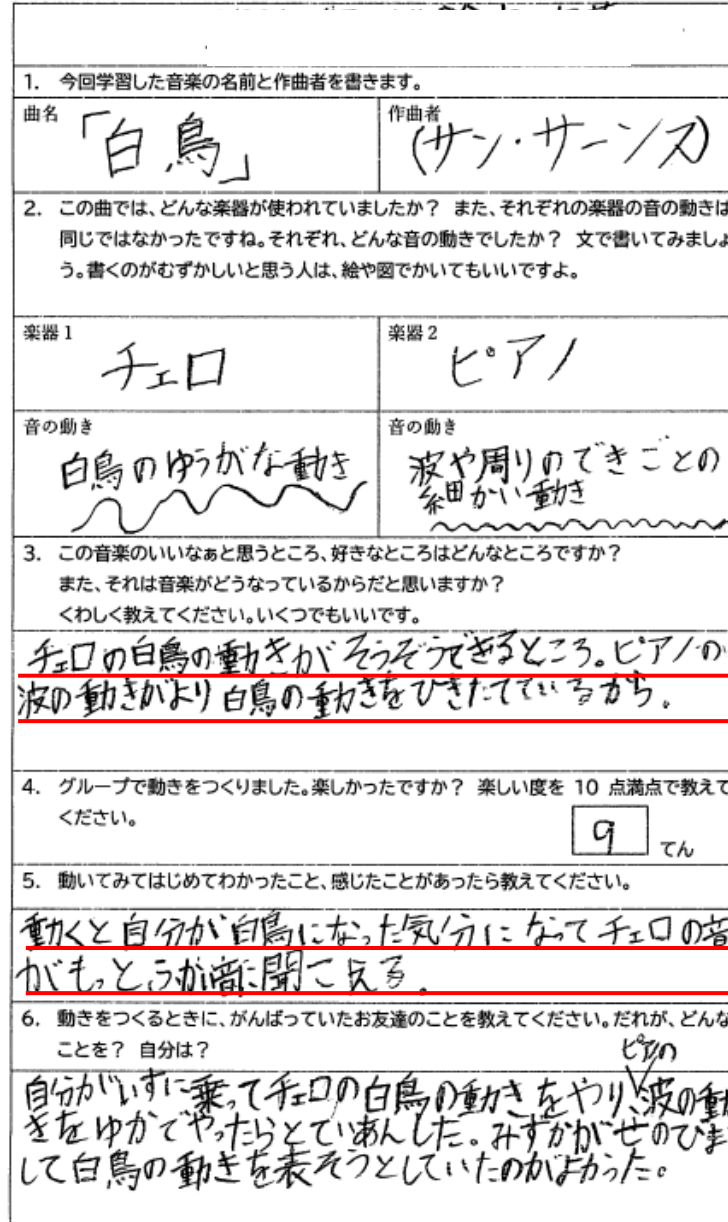 1. 今回学習した音楽の名前と作曲者を書きます。
曲名
「白鳥」
作曲者
(サン・サーンス)
2. この曲では、どんな楽器が使われていましたか？ また、それぞれの楽器の音の動きは
同じではなかったですね。それぞれ、どんな音の動きでしたか？ 文で書いてみましょ
う。書くのがむずかしいと思う人は、絵や図でかいてもいいですよ。
楽器1
チェロ
楽器2
ピアノ
音の動き
白鳥のゆうがな動き
音の動き
波や周りのできごとの
細かい動き
3. この音楽のいいなぁと思うところ、好きなところはどんなところですか？
また、それは音楽がどうなっているからだと思いますか？
くわしく教えてください。いくつでもいいです。
チェロの白鳥の動きがそうぞうできるところ。ピアノの
波の動きがより白鳥の動きをひきたてているから。
4. グループで動きをつくりました。楽しかったですか？ 楽しい度を 10 点満点で教えて
ください。
9 てん
5. 動いてみてはじめてわかったこと、感じたことがあったら教えてください。
動くと自分が白鳥になった気分になってチェロの音
がもっと に聞こえる。
6. 動きをつくるときに、がんばっていたお友達のことを教えてください。だれが、どんな
ことを？ 自分は？
自分がいすに乗ってチェロの白鳥の動きをやり、ピアノの波の動
きをゆかでやったらとていあんした。 のびま
して白鳥の動きを表そうとしていたのがよかった。